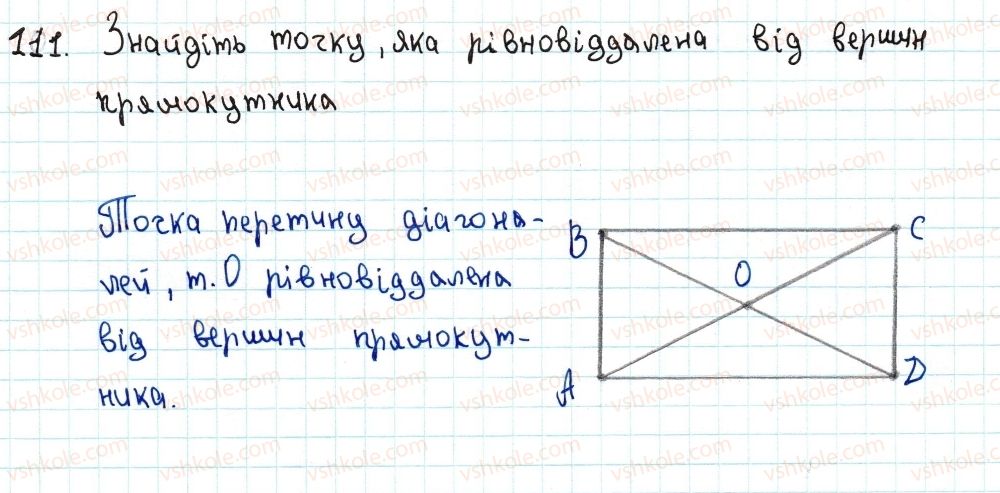 111. Знайдіть точку, яка рівновіддалена від вершин
прямокутника
Точка перетину діагона-
лей, т. О рівновіддалена
від вершин прямокут-
ника.
B
C
O
A
D
vshkole.com